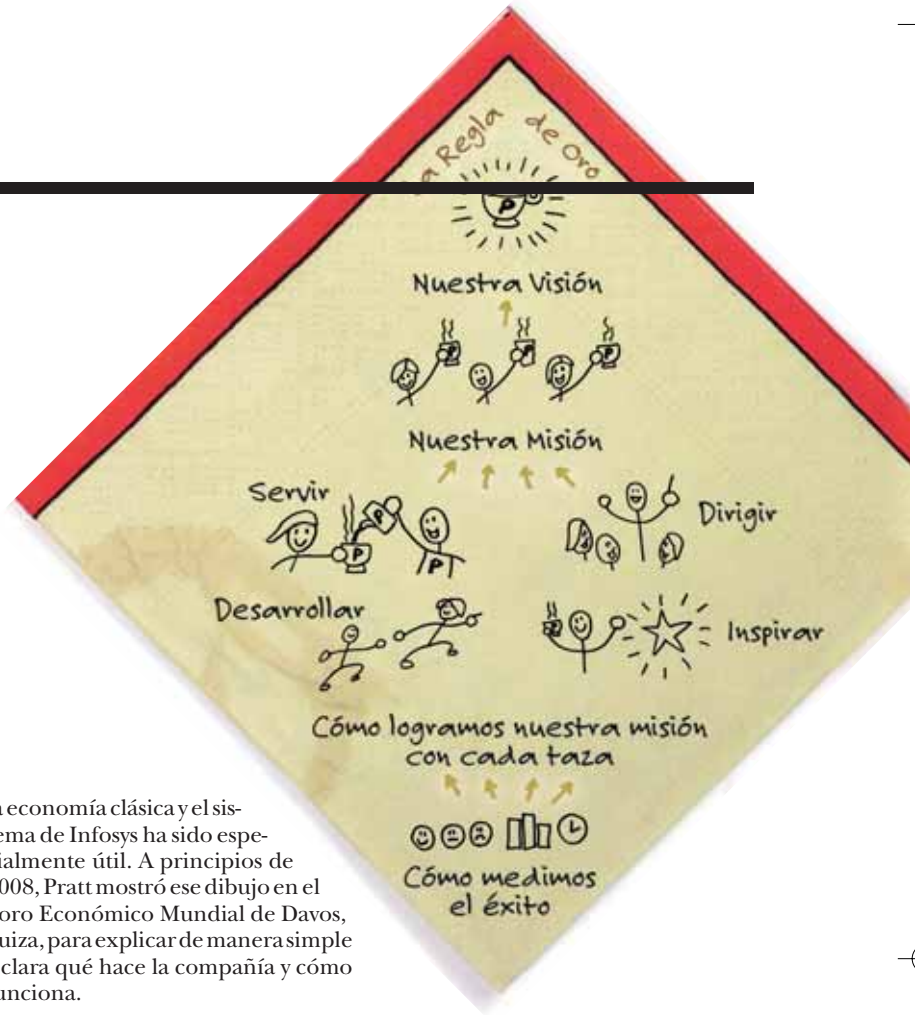 La Regla de Oro
P
Nuestra Visión
P P P
Nuestra Misión
Servir
Dirigir
P P
P
Desarrollar
Inspirar
Cómo logramos nuestra misión
con cada taza
Cómo medimos
el éxito
a economía clásica y el sis-
ema de Infosys ha sido espe-
ialmente útil. A principios de
008, Pratt mostró ese dibujo en el
oro Económico Mundial de Davos,
uiza, para explicar de manera simple
clara qué hace la compañía y cómo
unciona.